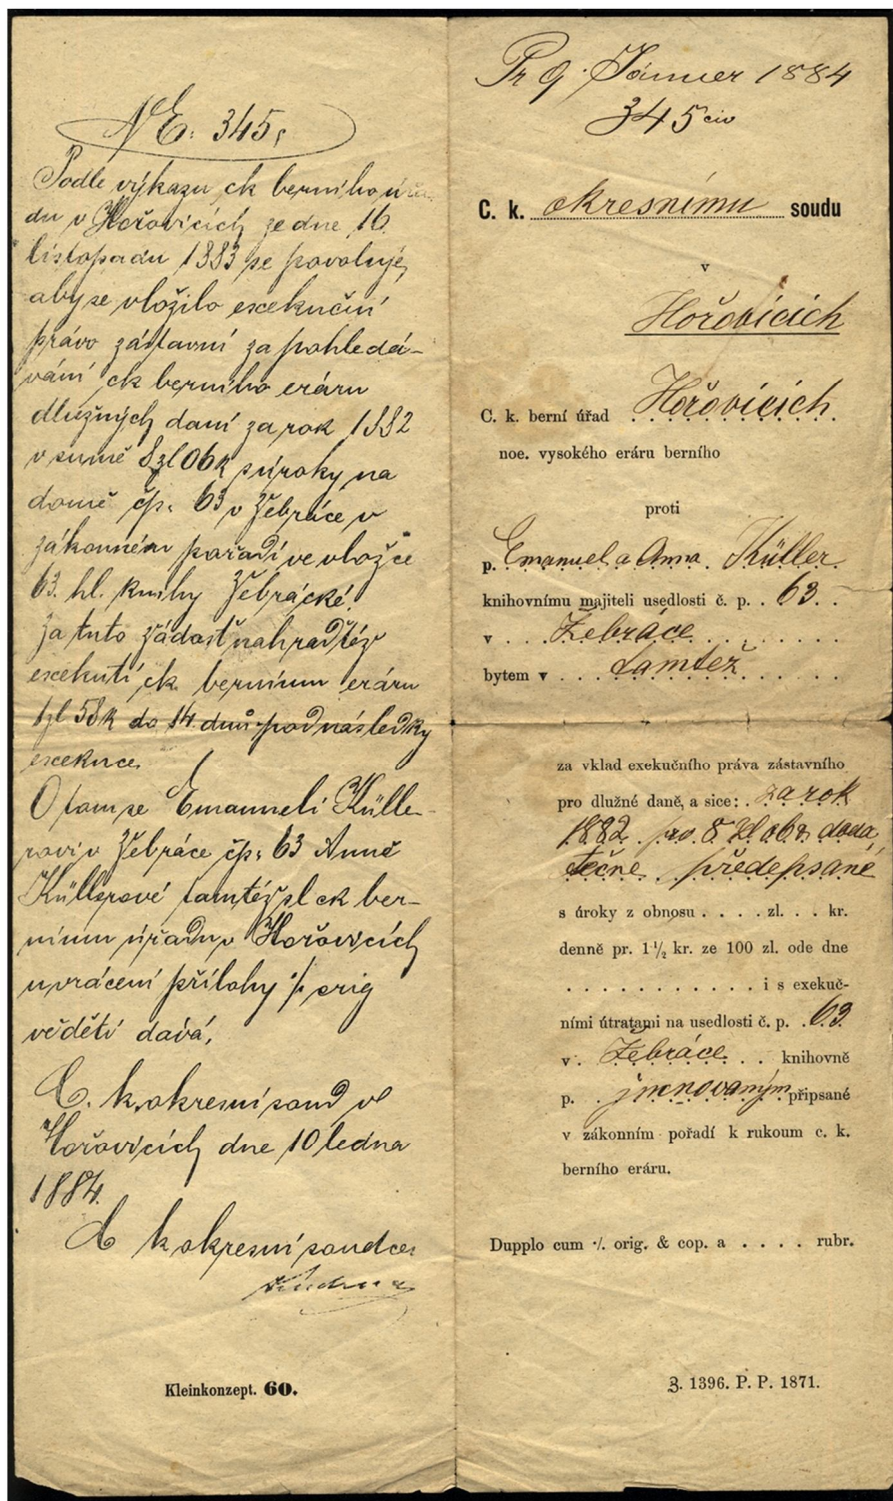 NE: 345.
Podle výkazu ck berního úřa
du v Hořovicích ze dne 16
listopadu 1883 se povoluje,
aby se vložilo exekuční
právo zástavní za pohledá-
vání ck berního eráru
dlužných daní za rok 1882
v sumě 8 zl 06 k s úroky na
domě čp. 63 v Žebráce v
zákonném pořadí ve vložce
63. hl. knihy Žebrácké.
Za tuto žádost nahradtéž
exekutí ck. bernímu eráru
1 zl 58 k do 14 dnů pod následky
exekuce.
O tom se Emanueli Külle-
rovi v Žebráce čp. 63 Anně
Küllerové tamtéž ck ber-
nímu úřadu v Hořovicích
u vrácení přílohy ./. orig
věděti dává.
C. k. okresní soud v
Hořovicích dne 10 ledna
1884.
C k okresní soudce
Kleinkonzept. 60.
Pr 9. Jänner 1884
345 civ
C. k. okresnímu soudu
v
Hořovicích
C. k. berní úřad Hořovicích
noe. vysokého eráru berního
proti
p. Emanuel a Anna Küller
knihovnímu majiteli usedlosti č. p. 63
v Žebráce
bytem v tamtéž
za vklad exekučního práva zástavního
pro dlužné daně, a sice: za rok
1882 pro 8 zl 06 k doda
tečně předepsané
s úroky z obnosu . . . . zl. . . kr.
denně pr. 1 1/2 kr. ze 100 zl. ode dne
. . . . . . . . . . . i s exekuč-
ními útratami na usedlosti č. p. 63
v Žebráce knihovně
p. jmenovaným připsané
v zákonním pořadí k rukoum c. k.
berního eráru.
Dupplo cum ./. orig. & cop. a . . . . rubr.
3. 1396. P. P. 1871.